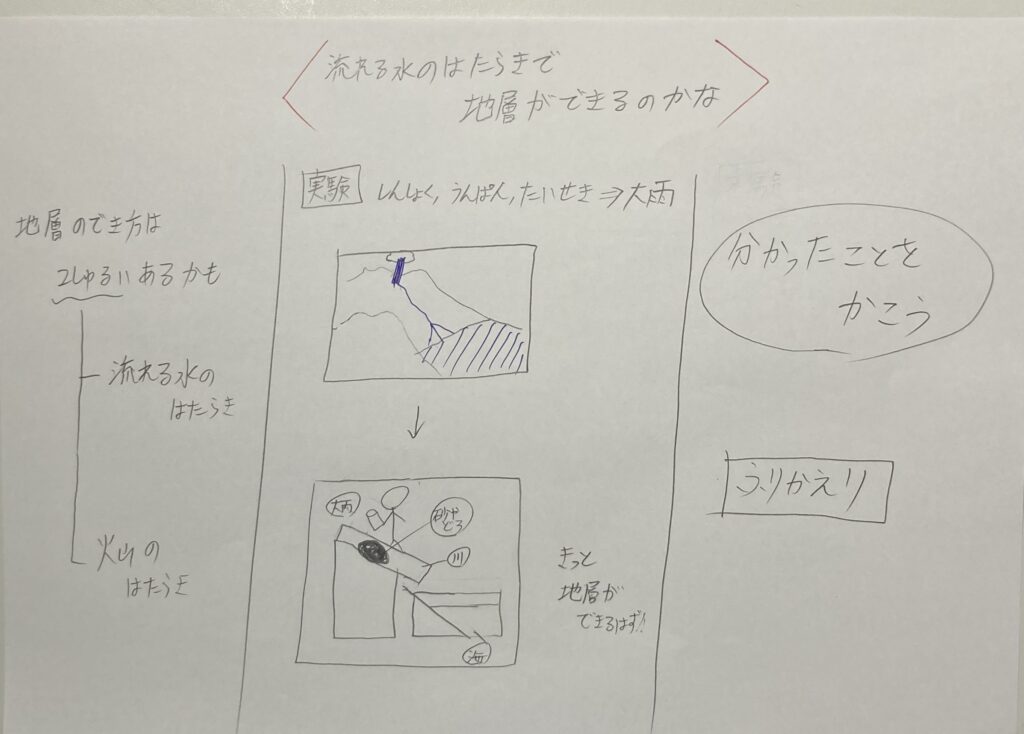 流れる水のはたらきで
地層ができるのかな
地層のでき方は
2しゅるいあるかも
流れる水の
はたらき
火山の
はたらき
実験 しんしょく,うんぱん,たいせき⇒大雨
大雨
砂や
どろ
川
海
きっと
地層が
できるはず!!
分かったことを
かこう
ふりかえり